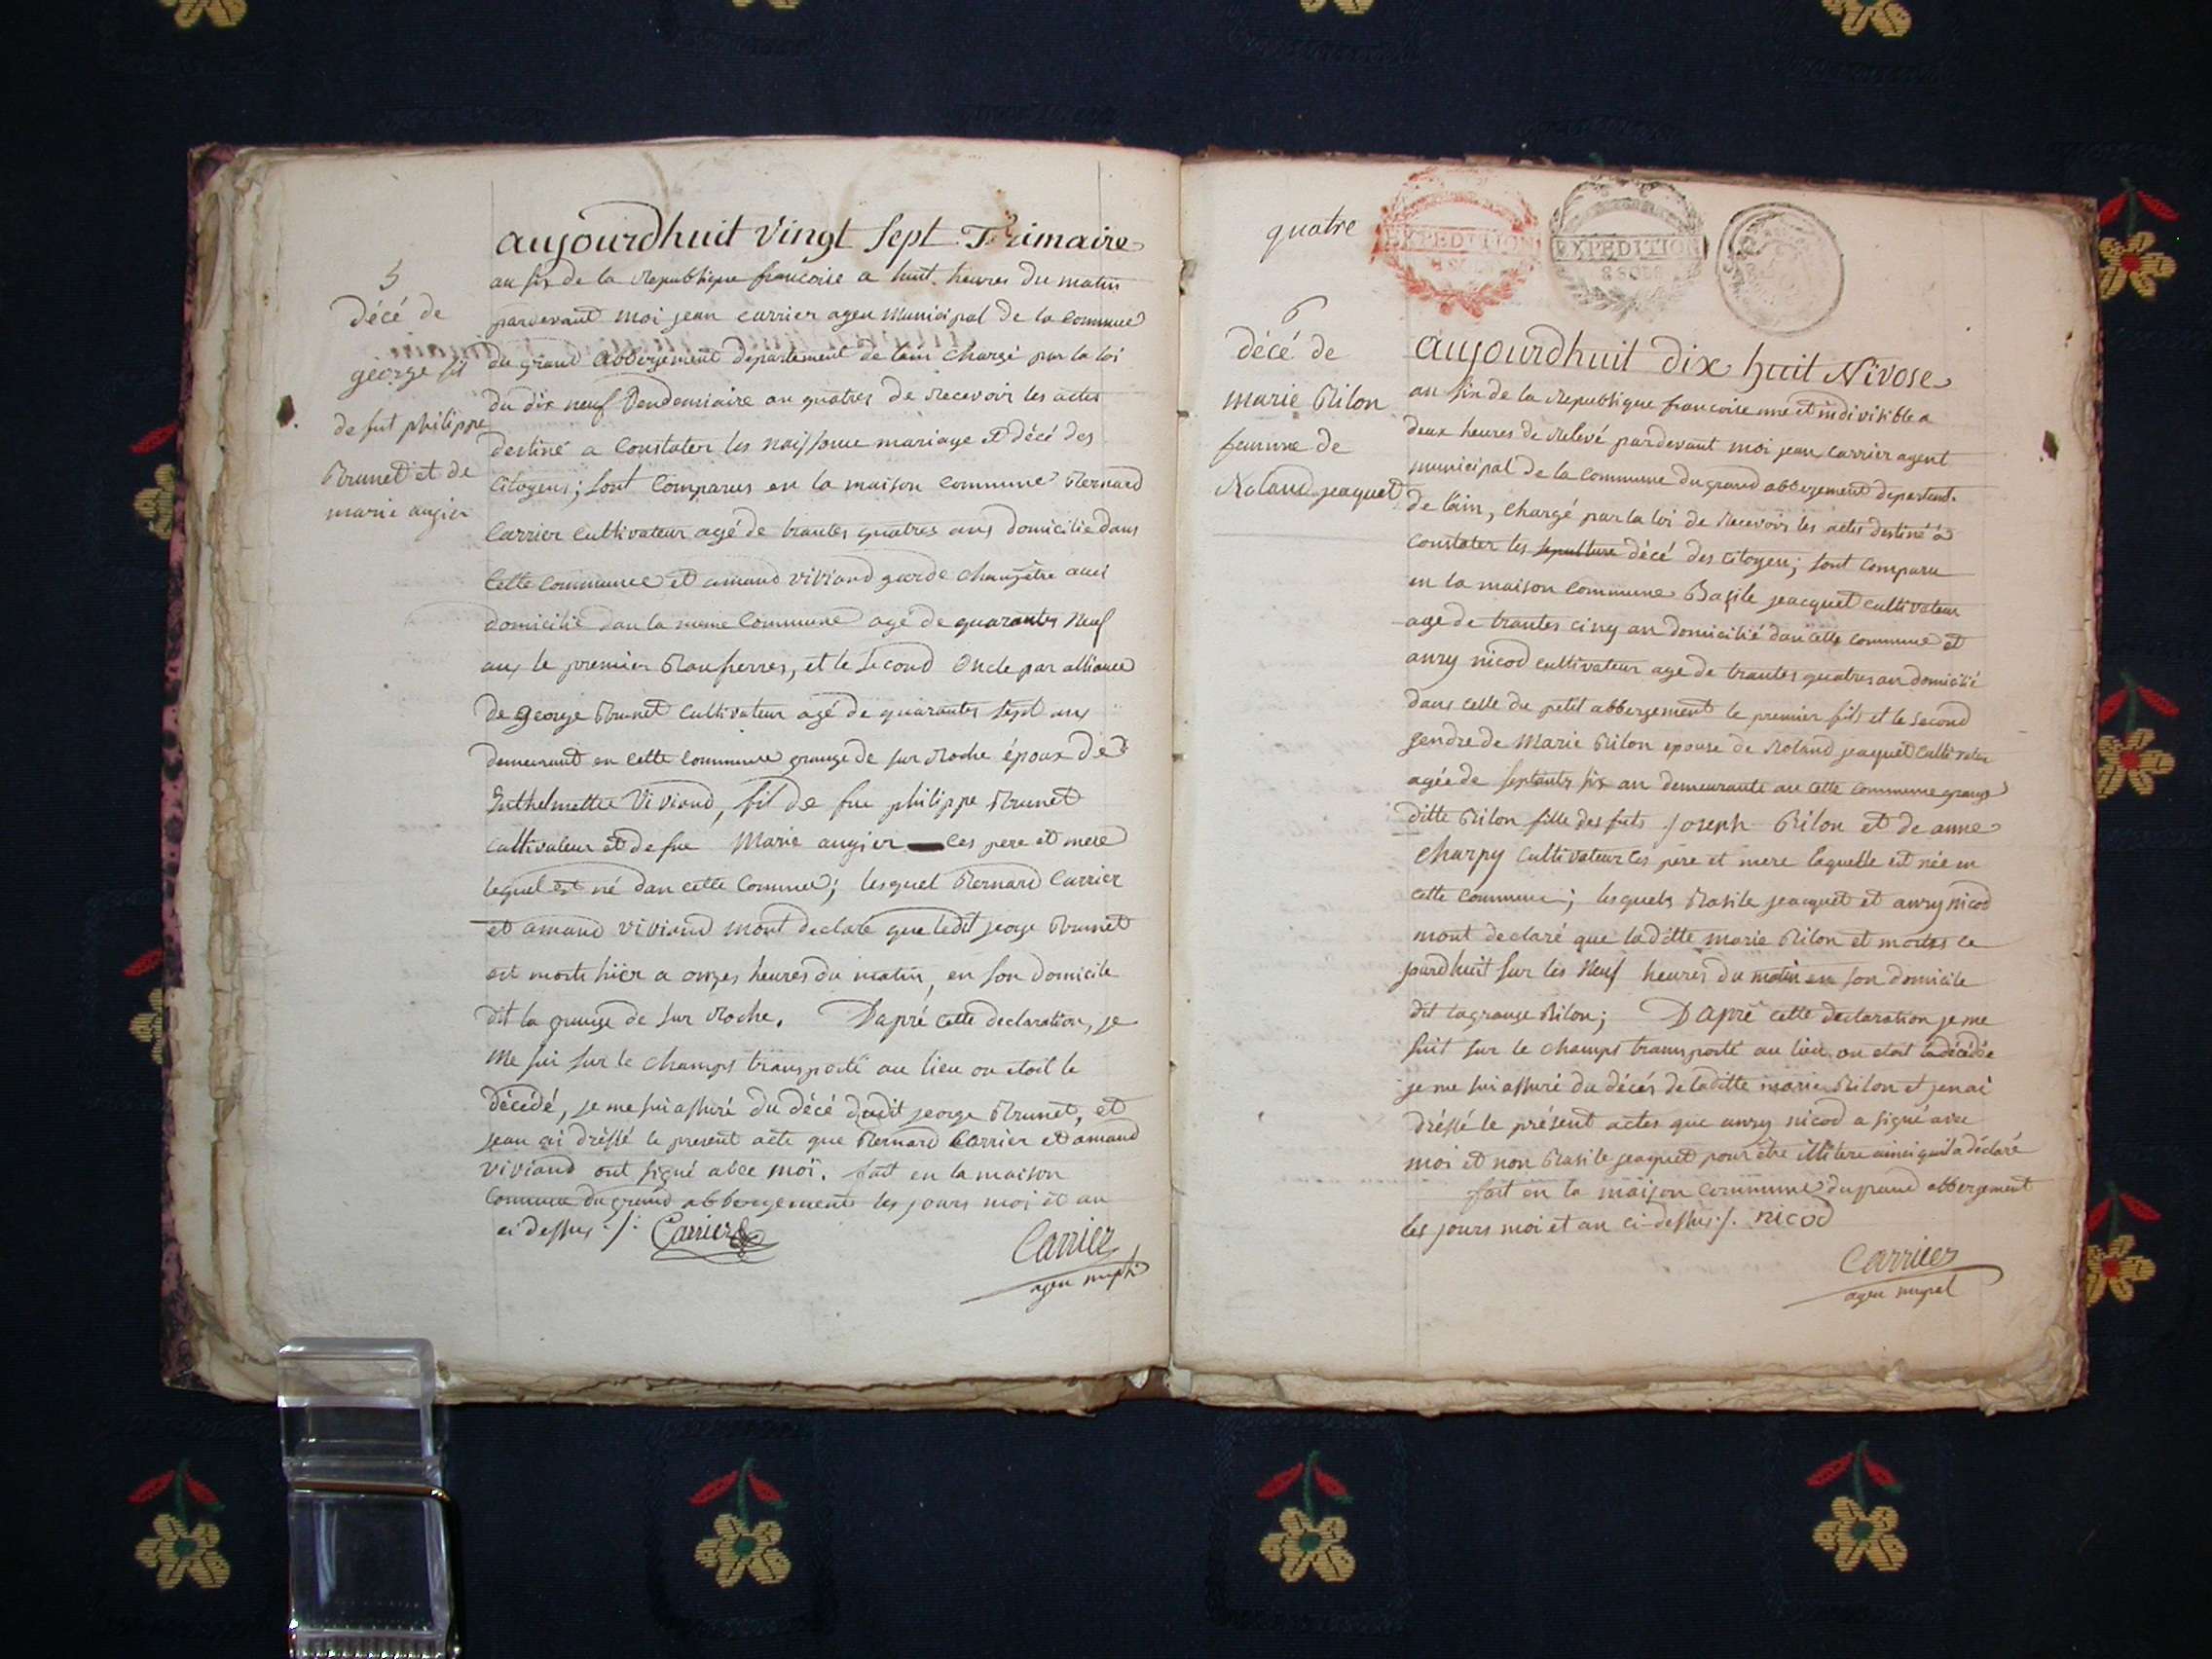 5
décé de
george fil
de fut philippe
Brunet et de
marie augier
aujourdhuit vingt sept Frimaire
an six de la Republique francoise a huit heures du matin
pardevant moi jean carrier agen municipal de la Commune
du grand abbergement departement de lain chargé par la loi
du dix neuf Vendemiaire an quatres de Recevoir les actes
destiné a Constater les naissance mariage et décé des
Citoyens; sont Comparus en la maison commune Bernard
Carrier cultivateur agé de trantes quatres ans domicilié dans
Cette commune et amand viviand garde champêtre aussi
domicilié dan la meme Commune agé de quarantes neuf
ans le premier Beaufrerres, et le second Oncle par alliance
de george Brunet cultivateur agé de quarantes sept ans
demeurant en cette commune grange de sur Roche époux de
Guthelmette Viviand, fil de fue philippe Brunet
cultivateur et de fue Marie augier ces pere et mere
lequel est né dan cette Commune; lesquel Bernard Carrier
et amand viviand mont declaré que ledit george Brunet
est morts hier a onzes heures du matin, en son domicile
dit la grange de sur Roche. Dapré cette declaration, je
me sui sur le champs transporté au lieu ou etoit le
décédé, je me sui assuré du décé dudit george Brunet, et
jean ai dréssé le present acte que Bernard Carrier et amand
viviand ont signé avec moi. fait en la maison
Commune du grand abbergement les jours moi et an
ci dessus ./. Carrier
Carrier
agen mupl
quatre
EXPEDITION
8 SOLS
EXPEDITION
8 SOLS
6
décé de
marie Bilon
femme de
Roland jeaquet
aujourdhuit dix huit Nivose
an six de la Republique francoise une et indivisible a
deux heures de Relevé pardevant moi jean carrier agent
municipal de la Commune du grand abbergement departemt.
de l'ain, chargé par la loi de Recevoir les actes destiné à
constater les sepulture décé des citoyen; sont comparu
en la maison commune Basile jeacquet cultivateur
age de trantes cinq an domicilié dan cette commune et
anry nicod cultivateur age de trantes quatres an domicilié
dans celle du petit abbergement le premier fils et le second
gendre de Marie Bilon epouse de Roland jeaquet cultivateur
agée de septantes six an demeurante an cette commune grange
ditte Bilon fille des futs Joseph Bilon et de anne
charpy cultivateur ces pere et mere laquelle est née en
cette commune; lesquels Basile jeacquet et anry nicod
mont declaré que laditte marie Bilon et mortes ce
jourdhuit sur les neuf heures du matin en son domicile
dit lagrange Bilon; Dapré cette declaration je me
suit sur le champs transporté au lieu ou etoit la décédée
je me sui assuré du décés de laditte marie Bilon et jenai
dréssé le présent actes que anry nicod a signé avec
moi et non Basile jeaquet pour être illitere ainci quil a déclaré
fait en la maison commune du grand abbergement
les jours moi et an ci-dessus ./. nicod
Carrier
agen mupal